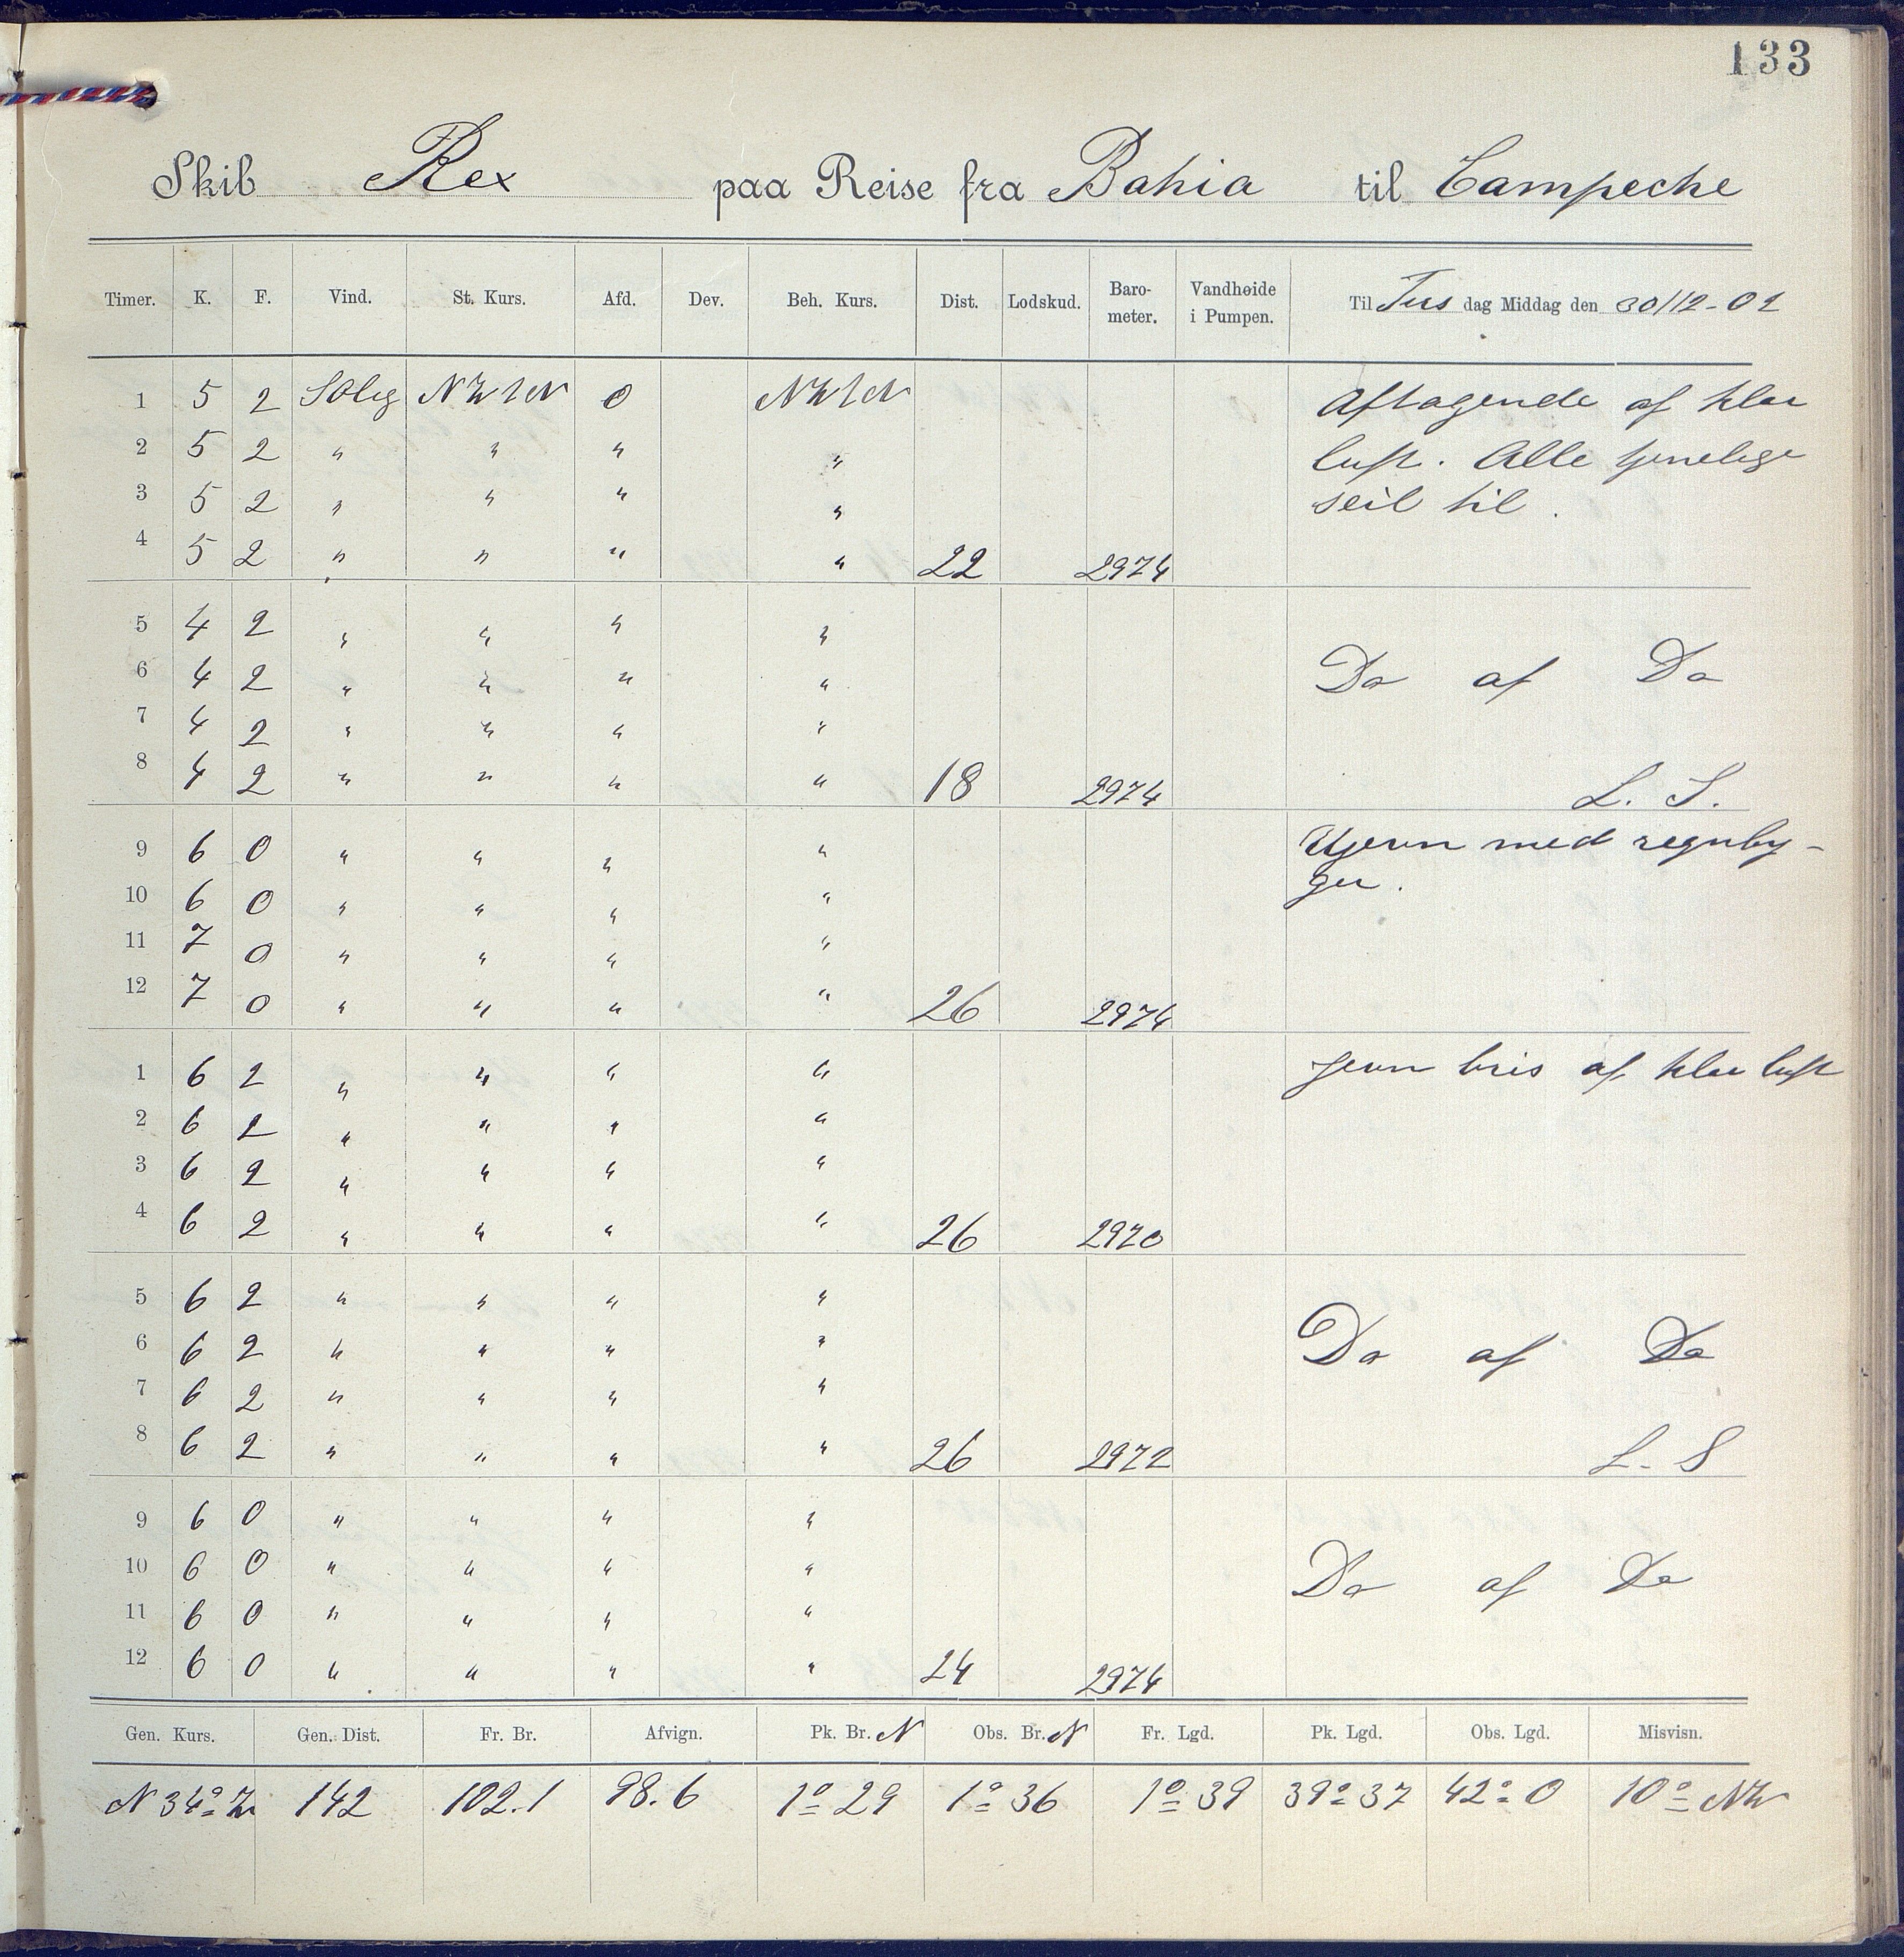 133
Skib Rex paa Reise fra Bahia til Campeche
Timer. K. F. Vind. St. Kurs. Afd. Dev. Beh. Kurs. Dist. Lodskud. Baro-meter. Vandhøide i Pumpen. Til Tirs dag Middag den 30/12-02
1 5 2 SOlig NW1N 0 NW1N Aftagende af klar
2 5 2 " " " " luft. Alle tjenelige
3 5 2 " " " " seil til.
4 5 2 " " " " 22 2974
5 4 2 " " " "
6 4 2 " " " " Do af Do
7 4 2 " " " "
8 4 2 " " " " 18 2974 L. S.
9 6 0 " " " " Ujevn med regnby-
10 6 0 " " " " ger.
11 7 0 " " " "
12 7 0 " " " " 26 2974
1 6 2 " " " " jevn bris af klar luft
2 6 2 " " " "
3 6 2 " " " "
4 6 2 " " " " 26 2970
5 6 2 " " " "
6 6 2 " " " " Do af Do
7 6 2 " " " "
8 6 2 " " " " 26 2972 L. S
9 6 0 " " " "
10 6 0 " " " " Do af Do
11 6 0 " " " "
12 6 0 " " " " 24 2974
Gen. Kurs. Gen. Dist. Fr. Br. Afvign. Pk. Br. N Obs. Br. N Fr. Lgd. Pk. Lgd. Obs. Lgd. Misvisn.
N 34° W 142 102.1 98.6 1° 29 1° 36 1° 39 39° 37 42° 0 10° NW